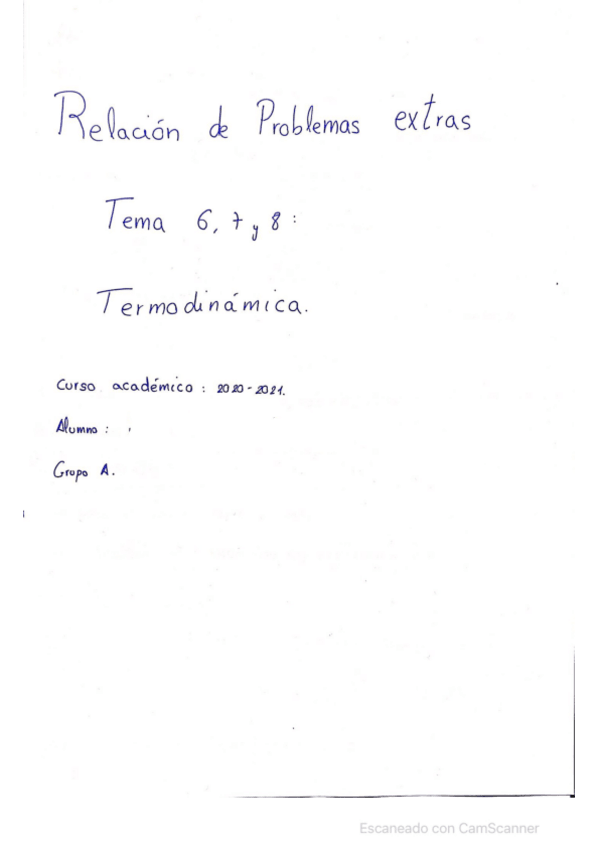 Relación de Problemas extras
Tema 6, 7 y 8 :
Termodinámica.
Curso académico : 2020-2021.
Alumno :
Grupo A.
Escaneado con CamScanner